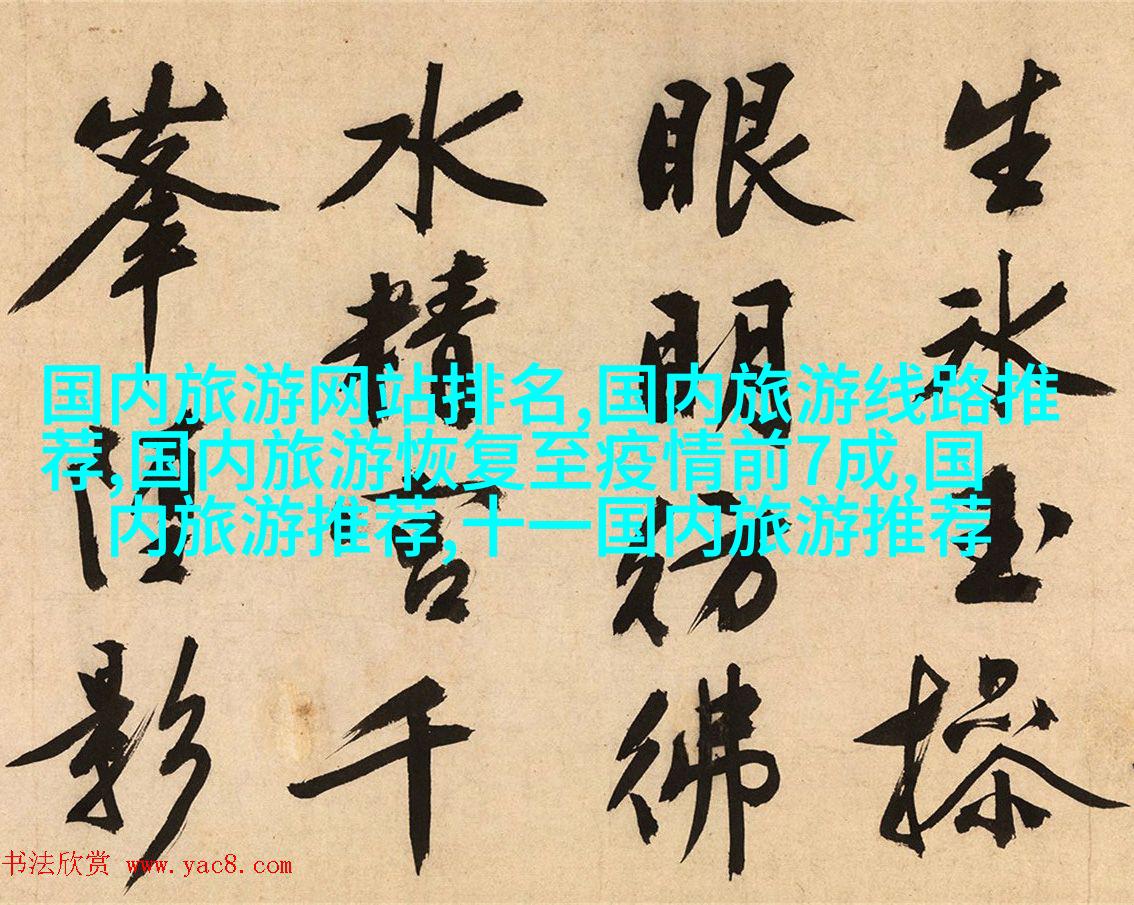 生冰玉操
眼明彷彿
水精宮千
峯影
国内旅游网站排名,国内旅游线路推
荐,国内旅游恢复至疫情前7成,国
内旅游推荐,十一国内旅游推荐
书法欣赏 www.yac8.com